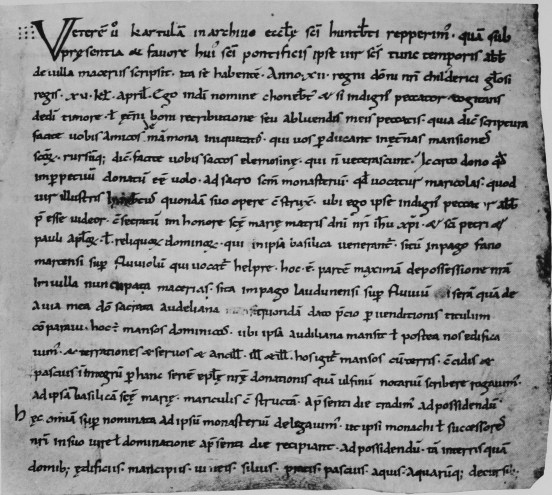 Veterē ū kartulā in archivo eccłę sc̄i hunb̄ti repperim᷒. quā sub
p̄sentia & favore hui᷒ sc̄i pontificis ipse vir sc̄s tunc temporis abb̄
de villa macerus scripsit. ita se habentē. Anno. xii. regni dōni nr̄i childerici głosi
regis. xv. kł. april̄. Ego in dī nomine chonēb̄t᷒ & si indign᷒ peccator cogitans
dedī timore. ł ęt̄nā bonī retributione seu abluendis meis peccatis. quia dic̄ scriptura
facite vobis amicos de māmona iniquitatis. qui vos p̄ducant in ęt̄nas mansiones
sc̄ōꝝ. rursūq; dic̄. facite vobis saccos elemosinę. qui n̄ veterascunt. Icirco dono qđ
imp̄petuū donatū eē volo. ad sacro sc̄m monasteriū. qđ vocatur maricolas. quod
vir illustris quondā suo opere c̄struxit. ubi ego ipse indign᷒ peccat̄ ł abb̄
p̄ esse videor. c̄secratū in honore sc̄ę marię matris dn̄i nr̄i ih̄u xp̄i. & sc̄i petri &
pauli apłoꝝ. ł reliquoꝝ dominoꝝ. qui in ipsa basilica venerant᷒. sitū in pago fano
martensi sup̄ fluviolū qui vocat᷒ helpre. hoc ē partē maximā de possessione nr̄a
in villa nuncupata macerias. sita in pago laudunensi sup̄ fluviū isera. quā de
avia mea dō sacrata audeliana quondā dato p̄cio p̄ venditionis titulum
cōparavi. hoc ē mansos dominicos. ubi ipsa audiliana mansit ł postea nos edifica
vim᷒. & terrationes & servos & ancill. ill & ill. hos igit᷒ mansos cū terris. c̄cidis &
pascuis in integrū p̄ hanc seriē epłę nr̄ę donationis quā ulfinū notariū scribere rogavim᷒.
ad ipsā basilicā sc̄ę marię. mariculis c̄ structā. a p̄senti die tradim᷒ ad possidendū
hęc om̄ia sup̄ nominata ad ipsū monasteriū delegavim᷒. ut ipsi monachi ł successores
nr̄i in suo iure ł dominatione a p̄senti die recipiant. ad possidendū. tā in terris quā
domib; ędificiis. mancipiis. vineis. silvis. pratis. pascuis. aquis. aquarūq; decursib;